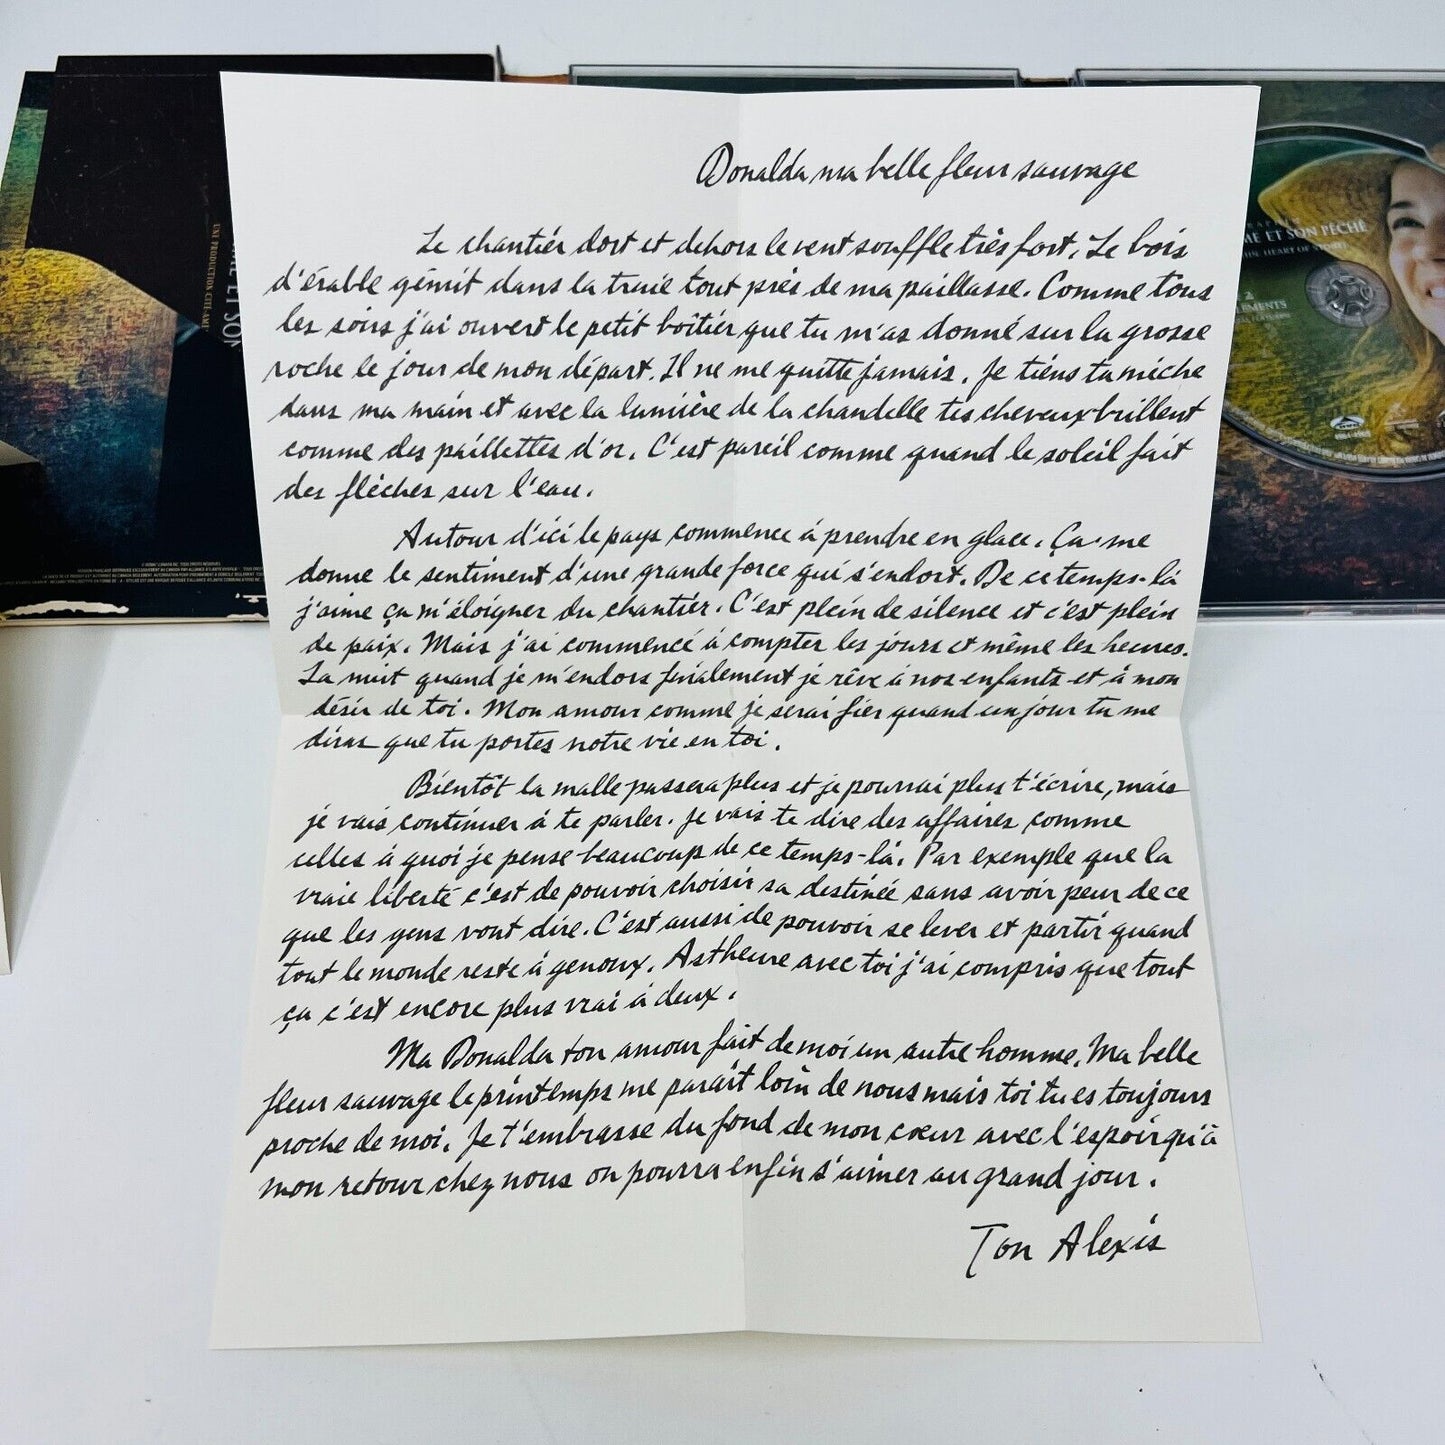 Donalda ma belle fleur sauvage
Le chantier dort et dehors le vent souffle très fort. Le bois
d'érable gémit dans la truie tout près de ma paillasse. Comme tous
les soirs j'ai ouvert le petit boîtier que tu m'as donné sur la grosse
roche le jour de mon départ. Il ne me quitte jamais. Je tiens ta mèche
dans ma main et avec la lumière de la chandelle tes cheveux brillent
comme des paillettes d'or. C'est pareil comme quand le soleil fait
des flèches sur l'eau.
Autour d'ici le pays commence à prendre en glace. Ça me
donne le sentiment d'une grande force qui s'endort. De ce temps-là
j'aime ça m'éloigner du chantier. C'est plein de silence et c'est plein
de paix. Mais j'ai commencé à compter les jours et même les heures.
La nuit quand je m'endors finalement je rêve à nos enfants et à mon
désir de toi. Mon amour comme je serai fier quand un jour tu me
diras que tu portes notre vie en toi.
Bientôt la malle passera plus et je pourrai plus t'écrire, mais
je vais continuer à te parler. Je vais te dire des affaires comme
celles à quoi je pense beaucoup de ce temps-là. Par exemple que la
vraie liberté c'est de pouvoir choisir sa destinée sans avoir peur de ce
que les gens vont dire. C'est aussi de pouvoir se lever et partir quand
tout le monde reste à genoux. Astheure avec toi j'ai compris que tout
ça c'est encore plus vrai à deux.
Ma Donalda ton amour fait de moi un autre homme. Ma belle
fleur sauvage le printemps me paraît loin de nous mais toi tu es toujours
proche de moi. Je t'embrasse du fond de mon cœur avec l'espoir qu'à
mon retour chez nous on pourra enfin s'aimer au grand jour.
Ton Alexis
ET SON
UNE PRODUCTION CITÉ-AMÉ
ME ET SON PÉCHÉ
HEART OF STONE
2